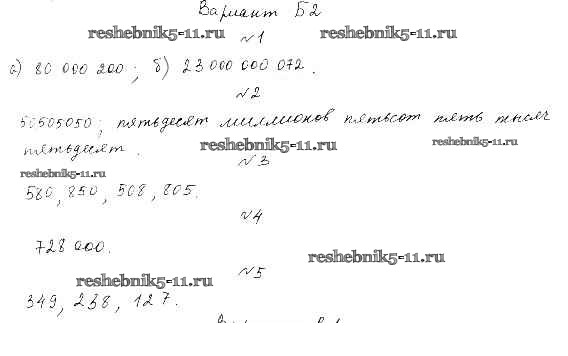 Вариант Б2
reshebnik5-11.ru reshebnik5-11.ru
№1
а) 80 000 200; б) 23 000 000 072.
№2
50505050; пятьдесят миллионов пятьсот пять тысяч
пятьдесят. reshebnik5-11.ru reshebnik5-11.ru
№3
reshebnik5-11.ru
580, 850, 508, 805.
№4
728 000.
reshebnik5-11.ru
№5
reshebnik5-11.ru
349, 238, 127.